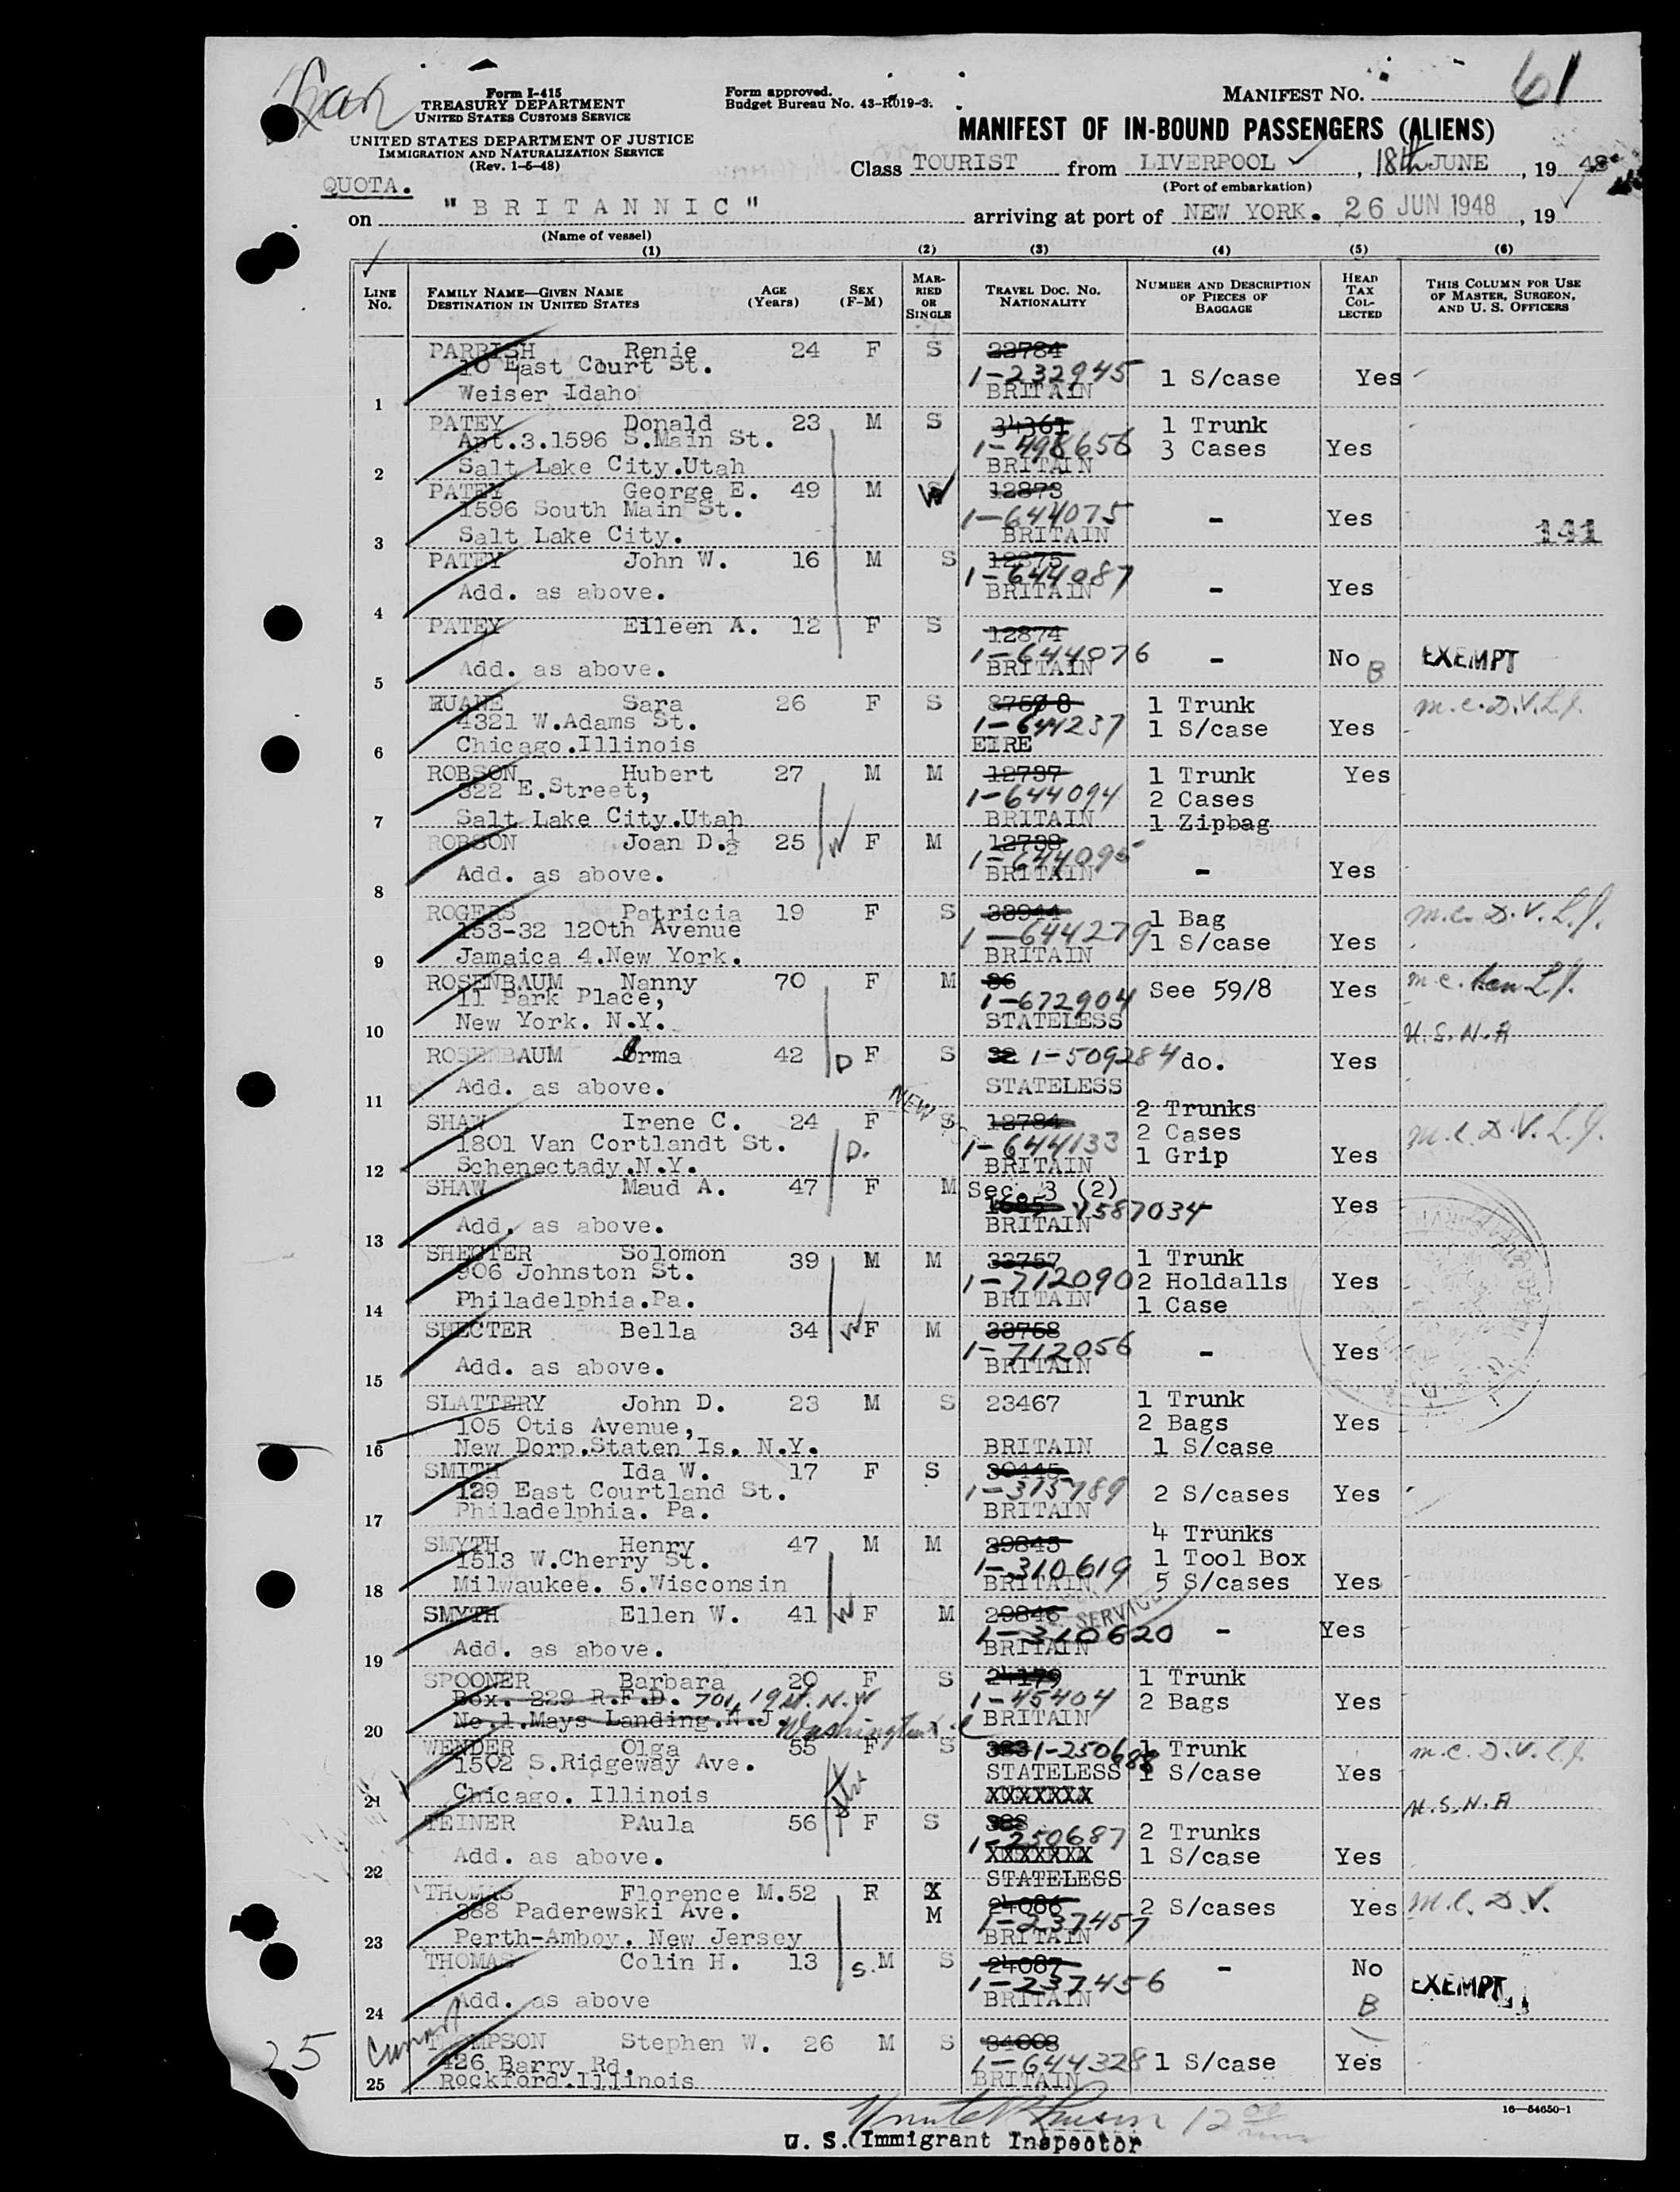 61
Form I-415
TREASURY DEPARTMENT
UNITED STATES CUSTOMS SERVICE
UNITED STATES DEPARTMENT OF JUSTICE
IMMIGRATION AND NATURALIZATION SERVICE
(Rev. 1-5-48)
Form approved.
Budget Bureau No. 43-R019-3.
MANIFEST NO.
MANIFEST OF IN-BOUND PASSENGERS (ALIENS)
Class TOURIST from LIVERPOOL, 18th JUNE, 19 48
(Port of embarkation)
QUOTA.
on "BRITANNIC" arriving at port of NEW YORK. 26 JUN 1948, 19
(Name of vessel)
(1) (2) (3) (4) (5) (6)
LINE NO. FAMILY NAME—GIVEN NAME DESTINATION IN UNITED STATES AGE (Years) SEX (F-M) MARRIED OR SINGLE TRAVEL DOC. NO. NATIONALITY NUMBER AND DESCRIPTION OF PIECES OF BAGGAGE HEAD TAX COLLECTED THIS COLUMN FOR USE OF MASTER, SURGEON, AND U. S. OFFICERS
PARRISH Renie 24 F S 22784
10 East Court St. 1-232945 1 S/case Yes
1 Weiser Idaho BRITAIN
PATEY Donald 23 M S 34361 1 Trunk
Apt.3.1596 S.Main St. 1-498656 3 Cases Yes
2 Salt Lake City.Utah BRITAIN
PATEY George E. 49 M W 12873
1596 South Main St. 1-644075 - Yes
3 Salt Lake City. BRITAIN 141
PATEY John W. 16 M S 12875
1-644087
4 Add. as above. BRITAIN - Yes
PATEY Eileen A. 12 F S 12874
1-644076 - No B EXEMPT
5 Add. as above. BRITAIN
RUANE Sara 26 F S 1 Trunk m.c.D.V.L.J.
4321 W.Adams St. 1-644237 1 S/case Yes
6 Chicago.Illinois EIRE
ROBSON Hubert 27 M M 12737 1 Trunk Yes
322 E.Street, 1-644094 2 Cases
7 Salt Lake City.Utah BRITAIN 1 Zipbag
ROBSON Joan D.½ 25 W F M 12738
1-644095
8 Add. as above. BRITAIN - Yes
ROGERS Patricia 19 F S 33944 1 Bag m.c. D.V.L.J.
153-32 120th Avenue 1-644279 1 S/case Yes
9 Jamaica 4.New York. BRITAIN
ROSENBAUM Nanny 70 F M 36 See 59/8 Yes m.c. L.J.
11 Park Place, 1-672904
10 New York. N.Y. STATELESS U.S.N.A
ROSENBAUM Erma 42 D F S 32 1-509284 do. Yes
11 Add. as above. STATELESS
NEW
SHAW Irene C. 24 F S 12784 2 Trunks
1801 Van Cortlandt St. D. 1-644133 2 Cases m.c.D.V.L.J.
12 Schenectady.N.Y. BRITAIN 1 Grip Yes
SHAW Maud A. 47 F M Sec. 3 (2)
1685 V587034 Yes
13 Add. as above. BRITAIN
SHECTER Solomon 39 M M 33757 1 Trunk
906 Johnston St. 1-712090 2 Holdalls Yes
14 Philadelphia.Pa. BRITAIN 1 Case
SHECTER Bella 34 W F M 33758
1-712056
15 Add. as above. BRITAIN - Yes
SLATTERY John D. 23 M S 23467 1 Trunk
105 Otis Avenue, 2 Bags Yes
16 New Dorp.Staten Is. N.Y. BRITAIN 1 S/case
SMITH Ida W. 17 F S 30445
129 East Courtland St. 1-315789 2 S/cases Yes
17 Philadelphia. Pa. BRITAIN
SMYTH Henry 47 M M 29845 4 Trunks
1513 W.Cherry St. 1-310619 1 Tool Box
18 Milwaukee. 5.Wisconsin BRITAIN 5 S/cases Yes
SMYTH Ellen W. 41 W F M 29846 SERVICE
1-310620 - Yes
19 Add. as above. BRITAIN
SPOONER Barbara 20 F S 24179 1 Trunk
Box. 229 R.F.D. 701, 19 St. N.W 1-45404 2 Bags Yes
20 No.1.Mays Landing.N.J. Washington BRITAIN
WENDER Olga 55 F S 383 1-250688 1 Trunk m.c. D.V.L.J.
1502 S.Ridgeway Ave. STATELESS 1 S/case Yes
21 Chicago. Illinois XXXXXXX U.S.N.A
TEINER PAula 56 F S 388 2 Trunks
1-250687
22 Add. as above. XXXXXXX 1 S/case Yes
STATELESS
THOMAS Florence M.52 F X M 24086 2 S/cases Yes m.c. D.V.
388 Paderewski Ave. 1-237457
23 Perth-Amboy. New Jersey BRITAIN
THOMAS Colin H. 13 S. M S 24087 - No EXEMPT
1-237456
24 Add. as above BRITAIN B
THOMPSON Stephen W. 26 M S 34003
426 Barry Rd. 1-644328 1 S/case Yes
25 Rockford.Illinois BRITAIN
25
16—54650-1
U. S. Immigrant Inspector